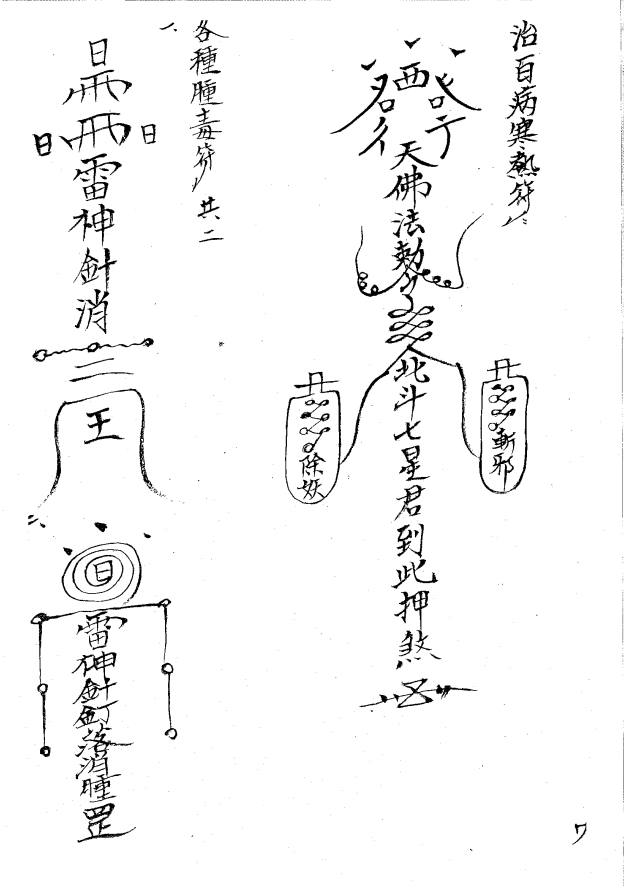 治百病寒熱符
西
天佛法勅令
北斗七星君到此押煞
斬邪
除妖
各種腫毒符 共二
一、
日
日 日
雷神針消
三
王
二、
日
雷神針釘落消腫罡
7